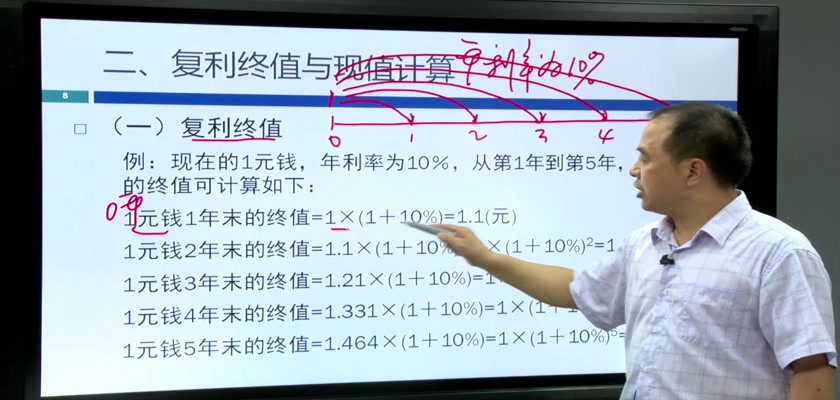 二、复利终值与现值计算
年利率为10%
8
0 1 2 3 4
□ （一）复利终值
例：现在的1元钱，年利率为10%，从第1年到第5年，
的终值可计算如下：
0年
1元钱1年末的终值=1×(1＋10%)=1.1(元)
1元钱2年末的终值=1.1×(1＋10%) ×(1＋10%)²=1.
1元钱3年末的终值=1.21×(1＋10%)=1
1元钱4年末的终值=1.331×(1＋10%)=1×(1＋1
1元钱5年末的终值=1.464×(1＋10%)=1×(1＋10%)⁵=